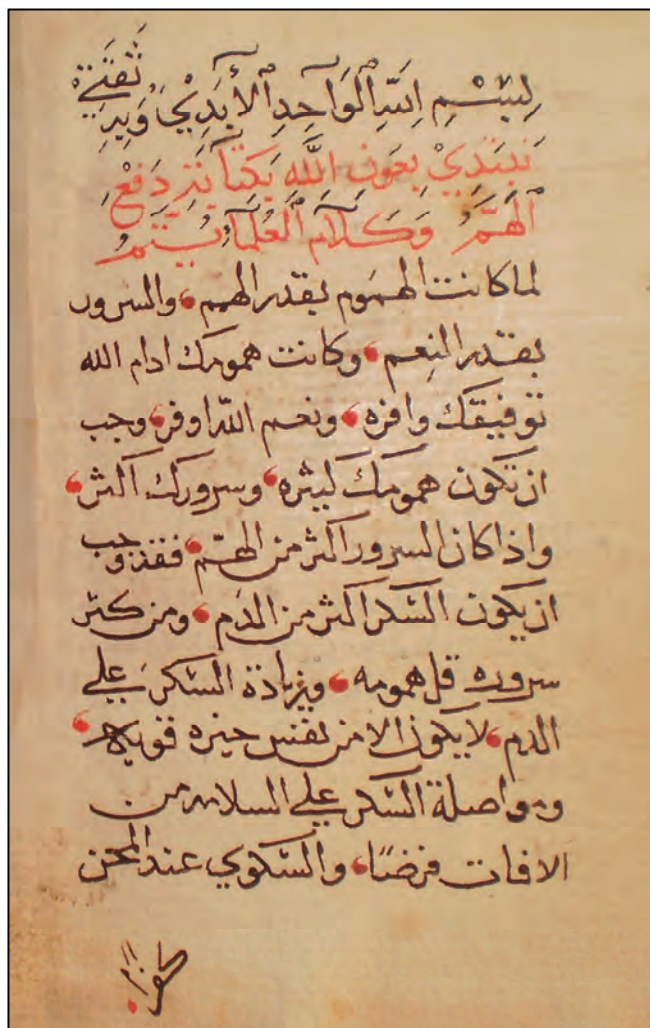 لِبسْمِ اللهِ ٱلْوَاحِدِ ٱلأَبَدِيْ وَبِهِ ثقَتَيْ
نَبتَدِيْ بعَون اللَّه بِكتَابْ دَفعِ
ٱلهَمّ وَكلَام العُلمَآ يُتَممُ
لما كانت الهموم بقدر الهمم، والسرور
بقدر النِعم، وكانت همومك ادام الله
توفيقك وافره، ونعم اللّه اوفر، وجب
ان تكون همومك كبيره، وسرورك اكثر،
واذا كان السرور اكثر من الهمّ، فقد وجب
ان يكون الشكر اكثر من الدم، ومن كثر
سروره قل همومه، وبزيادة الشكر علي
الدم، لا يكون الا من نفس خيره قويه،
ومواصلة الشكر علي السلامه من
الافات فرضًا، والشكوي عند المحن
كفرًا،